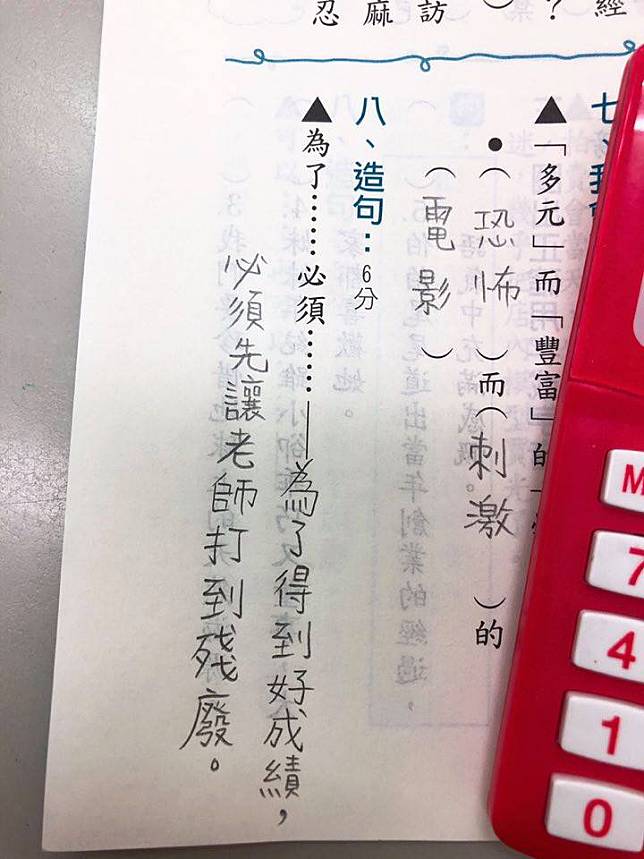 經
？
）
訪
麻
忍
七、我
▲「多元」而「豐富」的
●（恐怖）而（刺激）的
（電影）
八、造句：6分
▲為了……必須……——為了得到好成績，
必須先讓老師打到残廢。
M
7
4
1
0